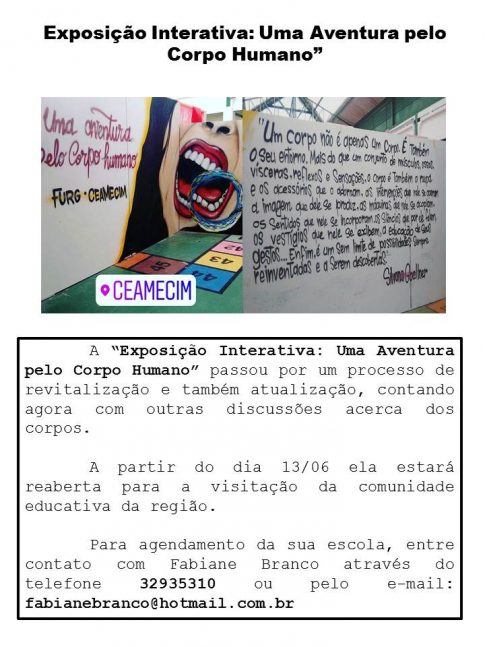 Exposição Interativa: Uma Aventura pelo
Corpo Humano”
Uma aventura
pelo Corpo humano
FURG - CEAMECIM
CEAMECIM
"Um corpo não é apenas um Corpo. É Também
o seu entorno. Mais do que um conjunto de músculos, ossos,
vísceras, reflexos e Sensações, o corpo é Também a roupa
e os acessórios que o adornam, as intervenções que nele se operam,
a imagem que dele se produz, as máquinas que nele se acoplam,
os Sentidos que nele se incorporam, os Silêncios que por ele falam,
os vestígios que nele se exibem, a educação de seus
gestos... Enfim, é um sem limite de possibilidades Sempre
reinventadas e a serem descobertas."
A “Exposição Interativa: Uma Aventura
pelo Corpo Humano” passou por um processo de
revitalização e também atualização, contando
agora com outras discussões acerca dos
corpos.
A partir do dia 13/06 ela estará
reaberta para a visitação da comunidade
educativa da região.
Para agendamento da sua escola, entre
contato com Fabiane Branco através do
telefone 32935310 ou pelo e-mail:
fabianebranco@hotmail.com.br